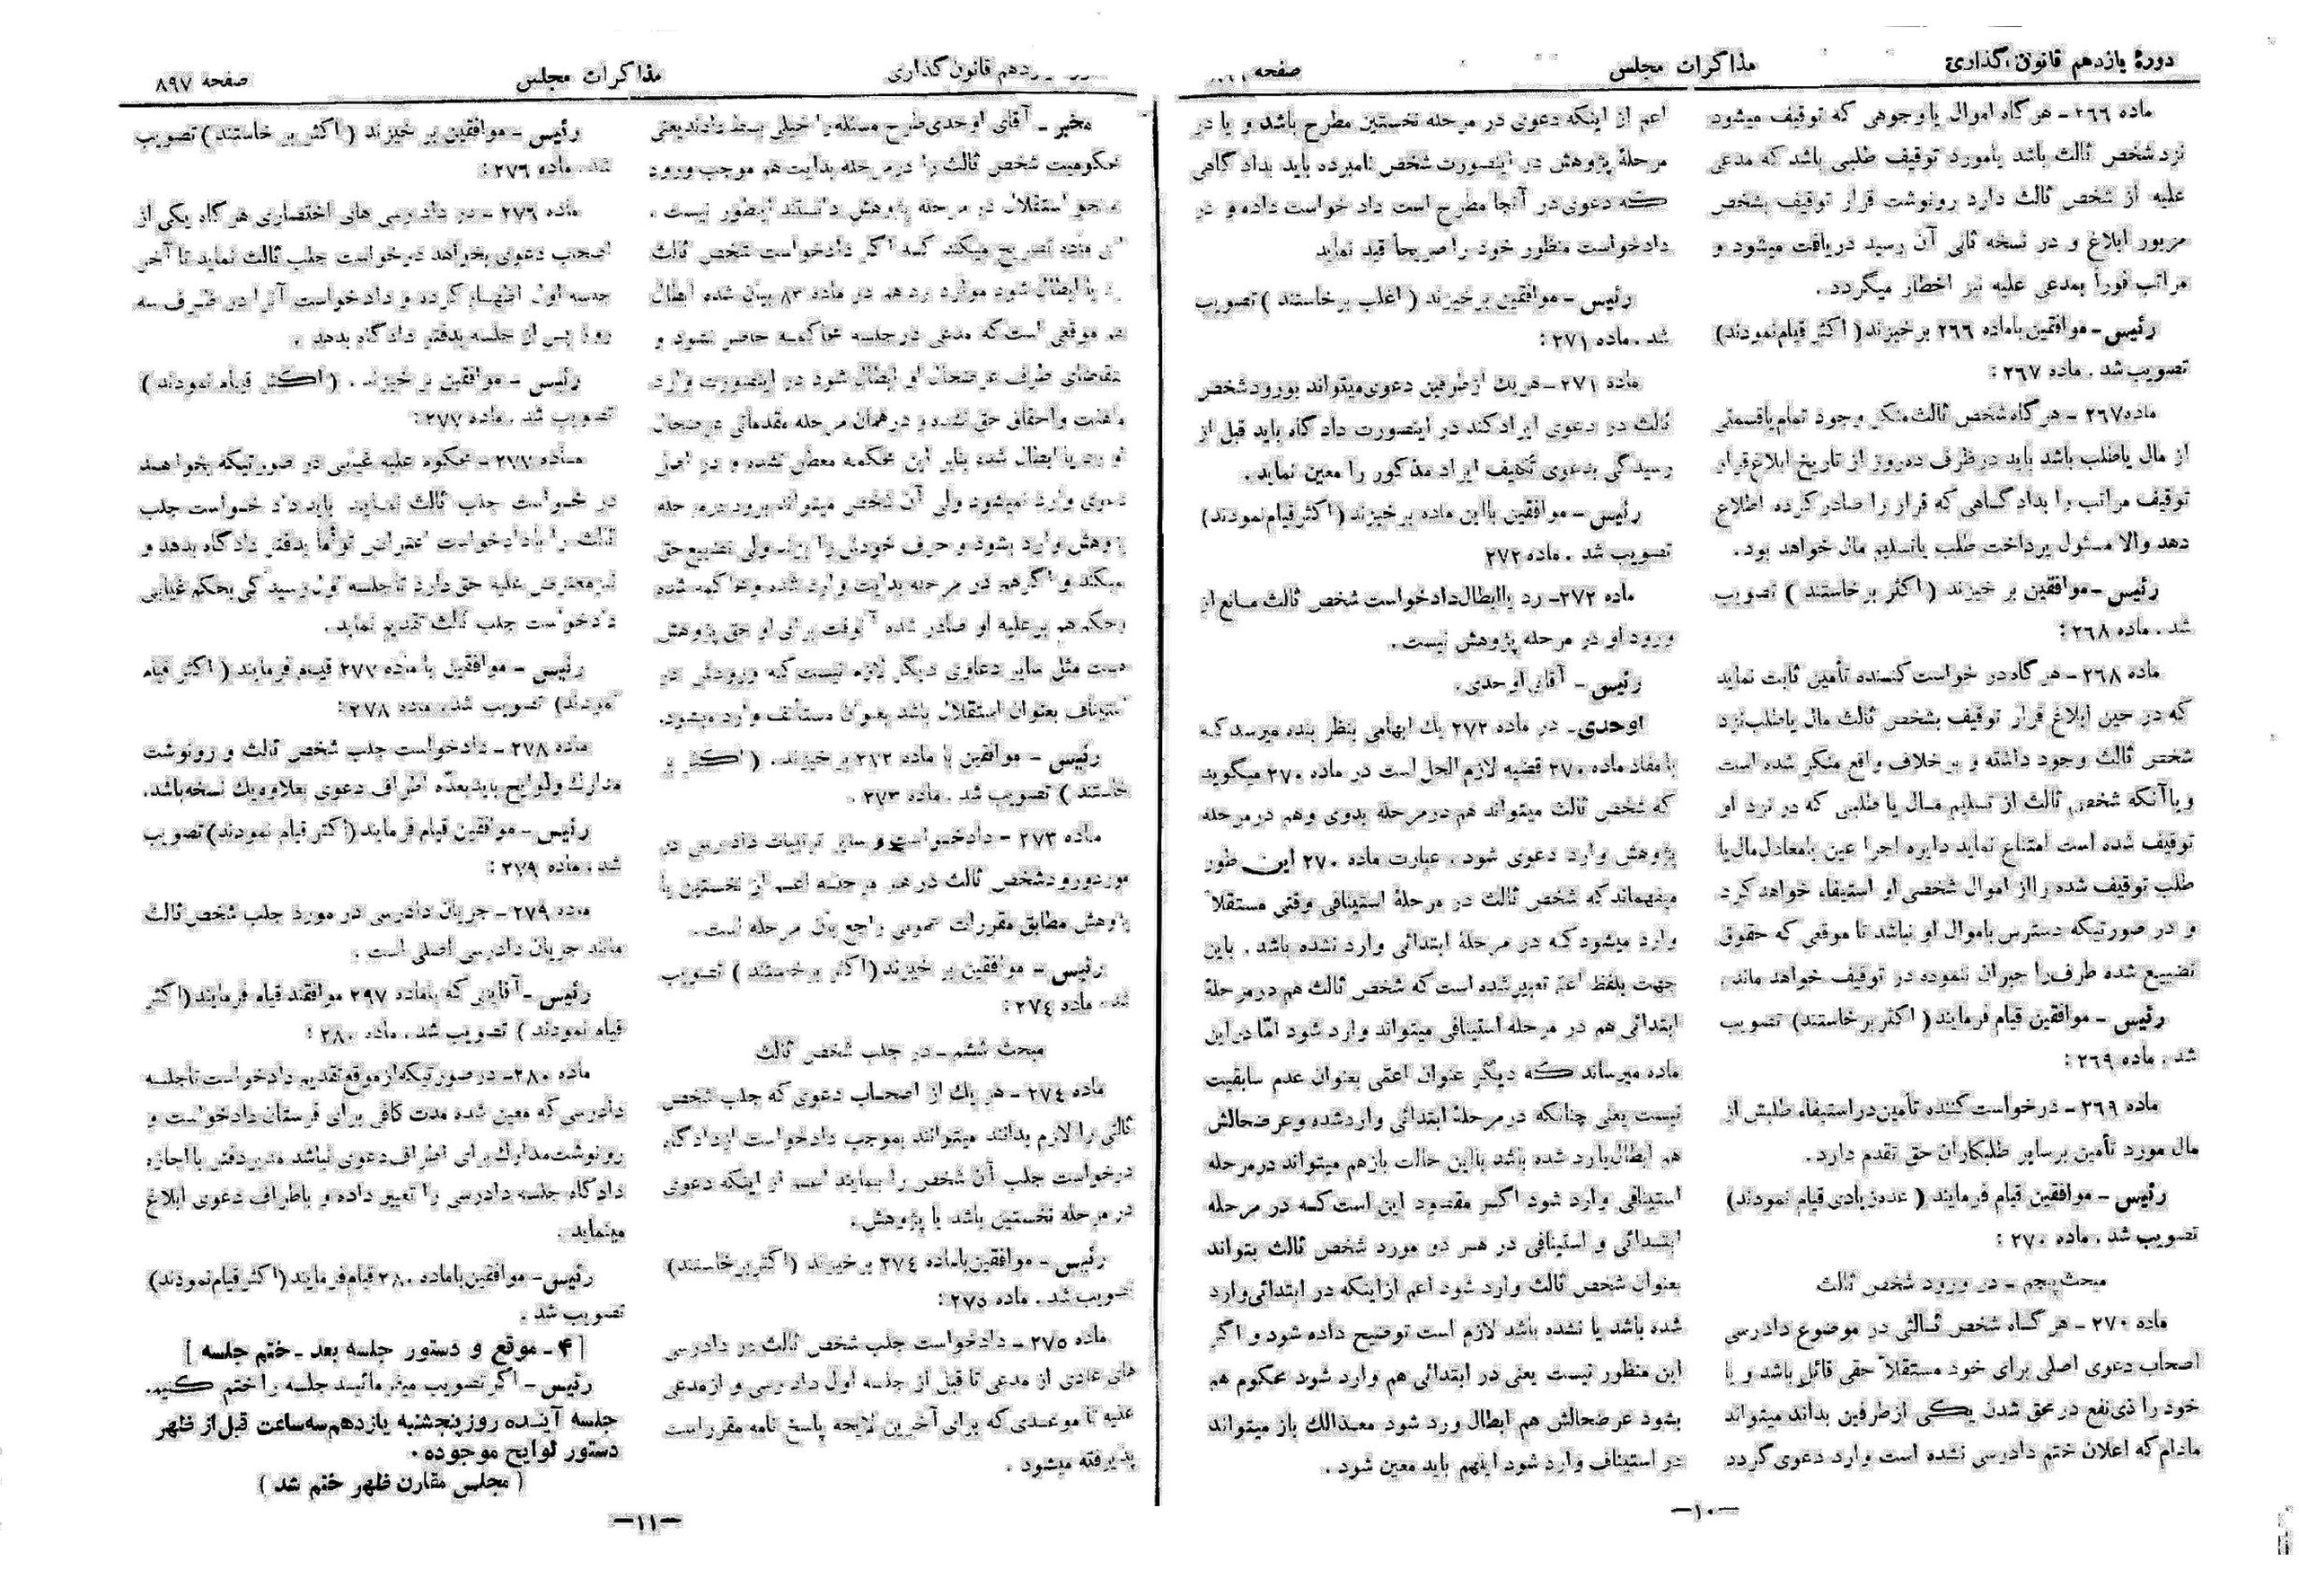 دورهٔ یازدهم قانون گذاری
مذاکرات مجلس
صفحه
ماده ۲۶۶ ـ هر گاه اموال یا وجوهی که توقیف میشود
نزد شخص ثالث باشد یا مورد توقیف طلبی باشد که مدعی
علیه از شخص ثالث دارد رونوشت قرار توقیف بشخص
مزبور ابلاغ و در نسخه ثانی آن رسید دریافت میشود و
مراتب فوراً بمدعی علیه نیز اخطار میگردد.
رئیس ـ موافقین با ماده ۲۶۶ برخیزند (اکثر قیام نمودند)
تصویب شد . ماده ۲۶۷ :
ماده ۲۶۷ ـ هر گاه شخص ثالث منکر وجود تمام یا قسمتی
از مال یا طلب باشد باید در ظرف ده روز از تاریخ ابلاغ قرار
توقیف مراتب را بدادگاهی که قرار را صادر کرده اطلاع
دهد والا مسئول پرداخت طلب یا تسلیم مال خواهد بود.
رئیس ـ موافقین بر خیزند ( اکثر بر خاستند ) تصویب
شد . ماده ۲۶۸ :
ماده ۲۶۸ ـ هر گاه در خواست کننده تأمین ثابت نماید
که در حین ابلاغ قرار توقیف بشخص ثالث مال یا طلب نزد
شخص ثالث وجود داشته و بر خلاف واقع منکر شده است
و یا آنکه شخص ثالث از تسلیم مال یا طلبی که در نزد او
توقیف شده است امتناع نماید دایره اجرا عین یا معادل مال یا
طلب توقیف شده را از اموال شخصی او استیفاء خواهد کرد
و در صورتیکه دسترس باموال او نباشد تا موقعی که حقوق
تضییع شده طرف را جبران ننموده در توقیف خواهد ماند .
رئیس ـ موافقین قیام فرمایند ( اکثر بر خاستند) تصویب
شد . ماده ۲۶۹ :
ماده ۲۶۹ ـ درخواست کننده تأمین در استیفاء طلبش از
مال مورد تأمین بر سایر طلبکاران حق تقدم دارد.
رئیس ـ موافقین قیام فرمایند ( عده زیادی قیام نمودند)
تصویب شد . ماده ۲۷۰ :
مبحث پنجم ـ در ورود شخص ثالث
ماده ۲۷۰ ـ هر گاه شخص ثالثی در موضوع دادرسی
اصحاب دعوی اصلی برای خود مستقلاً حقی قائل باشد و یا
خود را ذی نفع در محق شدن یکی از طرفین بداند میتواند
مادام که اعلان ختم دادرسی نشده است وارد دعوی گردد
اعم از اینکه دعوی در مرحله نخستین مطرح باشد و یا در
مرحلهٔ پژوهش در اینصورت شخص نامبرده باید بدادگاهی
که دعوی در آنجا مطرح است داد خواست داده و در
دادخواست منظور خود را صریحاً قید نماید
رئیس ـ موافقین برخیزند ( اغلب بر خاستند ) تصویب
شد . ماده ۲۷۱ :
ماده ۲۷۱ ـ هر یك از طرفین دعوی میتواند بورود شخص
ثالث در دعوی ایراد کند در اینصورت داد گاه باید قبل از
رسیدگی بدعوی تکلیف ایراد مذکور را معین نماید .
رئیس ـ موافقین با این ماده برخیزند (اکثر قیام نمودند)
تصویب شد . ماده ۲۷۲
ماده ۲۷۲ـ رد یا ابطال دادخواست شخص ثالث مانع از
ورود او در مرحله پژوهش نیست .
رئیس ـ آقای اوحدی.
اوحدی ـ در ماده ۲۷۲ یك ابهامی بنظر بنده میرسد که
با مفاد ماده ۲۷۰ قضیه لازم الحل است در ماده ۲۷۰ میگوید
که شخص ثالث میتواند هم در مرحله بدوی و هم در مرحله
پژوهش وارد دعوی شود . عبارت ماده ۲۷۰ این طور
میفهماند که شخص ثالث در مرحلهٔ استینافی وقتی مستقلاً
وارد میشود که در مرحلهٔ ابتدائی وارد نشده باشد . باین
جهت بلفظ اعم تعبیر شده است که شخص ثالث هم در مرحلهٔ
ابتدائی هم در مرحله استینافی میتواند وارد شود امّا در این
ماده میرساند که دیگر عنوان اعمّی بعنوان عدم سابقیت
نیست یعنی چنانکه در مرحلهٔ ابتدائی وارد شده و عرضحالش
هم ابطال یا رد شده باشد با این حالت بازهم میتواند در مرحله
استینافی وارد شود اگر مقصود این است که در مرحله
ابتدائی و استینافی در هر دو مورد شخص ثالث بتواند
بعنوان شخص ثالث وارد شود اعم از اینکه در ابتدائی وارد
شده باشد یا نشده باشد لازم است توضیح داده شود و اگر
این منظور نیست یعنی در ابتدائی هم وارد شود محکوم هم
بشود عرضحالش هم ابطال ورد شود معذالك باز میتواند
در استیناف وارد شود اینهم باید معین شود .
ـ۱۰ـ
قانون گذاری
مذاکرات مجلس
صفحه ۸۹۷
مخبر ـ آقای اوحدی طرح مسئله را خیلی بسط دادند یعنی
محکومیت شخص ثالث را در مرحله بدایت هم موجب ورود
بنحو استقلال در مرحله پژوهش دانستند اینطور نیست .
این ماده تصریح میکند که اگر دادخواست شخص ثالث
رد یا ابطال شود موارد رد هم در ماده ۸۳ بیان شده ابطال
هم موقعی است که مدعی در جلسه محاکمه حاضر نشود و
بتقاضای طرف عرضحال او ابطال شود در اینصورت وارد
ماهیت و احقاق حق نشده و در همان مرحله مقدماتی عرضحال
او رد یا ابطال شده بنابر این محکمه معطل نشده و در اصل
دعوی وارد نمیشود ولی آن شخص میتواند برود در مرحله
پژوهش وارد بشود و حرف خودش را بزند ولی تضییع حق
میکند و اگر هم در مرحله بدایت وارد شده و محاکمه شده
وحکم هم بر علیه او صادر شده آنوقت برای او حق پژوهش
هست مثل سایر دعاوی دیگر لازم نیست که ورودش در
استیناف بعنوان استقلال باشد بعنوان مستأنف وارد میشود.
رئیس ـ موافقین با ماده ۲۶۲ برخیزند . ( اکثر بر
خاستند ) تصویب شد . ماده ۲۷۳ .
ماده ۲۷۳ ـ دادخواست و سایر ترتیبات دادرسی در
مورد ورود شخص ثالث در هر مرحله اعم از نخستین یا
پژوهش مطابق مقررات عمومی راجع بآن مرحله است.
رئیس ـ موافقین بر خیزند (اکثر بر خاستند ) تصویب
شد . ماده ۲۷٤ :
مبحث ششم ـ در جلب شخص ثالث
ماده ۲۷٤ ـ هر یك از اصحاب دعوی که جلب شخص
ثالثی را لازم بدانند میتوانند بموجب دادخواست از دادگاه
درخواست جلب آن شخص را بنمایند اعم از اینکه دعوی
در مرحله نخستین باشد یا پژوهش.
رئیس ـ موافقین با ماده ۲۷٤ برخیزند (اکثر بر خاستند)
تصویب شد . ماده ۲۷٥ :
ماده ۲۷٥ ـ دادخواست جلب شخص ثالث در دادرسی
های عادی از مدعی تا قبل از جلسه اول دادرسی و از مدعی
علیه تا موعدی که برای آخرین لایحه پاسخ نامه مقرر است
پذیرفته میشود .
رئیس ـ موافقین بر خیزند ( اکثر بر خاستند) تصویب
شد . ماده ۲۷۶ :
ماده ۲۷۶ ـ در دادرسی های اختصاری هر گاه یکی از
اصحاب دعوی بخواهد درخواست جلب ثالث نماید تا آخر
جلسه اول اظهار کرده و دادخواست آنرا در ظرف سه
روز پس از جلسه بدفتر دادگاه بدهد .
رئیس ـ موافقین بر خیزند . ( اکثر قیام نمودند )
تصویب شد . ماده ۲۷۷ :
ماده ۲۷۷ ـ محکوم علیه غیابی در صورتیکه بخواهد
در خواست جلب ثالث نماید باید داد خواست جلب
ثالث را با دادخواست اعتراض توأماً بدفتر دادگاه بدهد و
نیز معترض علیه حق دارد تا جلسه اول رسیدگی بحکم غیابی
دادخواست جلب ثالث تقدیم نماید.
رئیس ـ موافقین با ماده ۲۷۷ قیام فرمایند ( اکثر قیام
نمودند) تصویب شد . ماده ۲۷۸ :
ماده ۲۷۸ ـ دادخواست جلب شخص ثالث و رونوشت
مدارك و لوایح باید بعدّه اطراف دعوی بعلاوه یك نسخه باشد.
رئیس ـ موافقین قیام فرمایند (اکثر قیام نمودند) تصویب
شد . ماده ۲۷۹ :
ماده ۲۷۹ ـ جریان دادرسی در مورد جلب شخص ثالث
مانند جریان دادرسی اصلی است .
رئیس ـ آقایانی که با ماده ۲۹۷ موافقند قیام فرمایند (اکثر
قیام نمودند ) تصویب شد . ماده ۲۸۰ :
ماده ۲۸۰ـ در صورتیکه از موقع تقدیم دادخواست تا جلسه
دادرسی که معین شده مدت کافی برای فرستادن دادخواست و
رونوشت مدارك برای اطراف دعوی نباشد مدیر دفتر با اجازه
دادگاه جلسه دادرسی را تغییر داده و باطراف دعوی ابلاغ
مینماید.
رئیس ـ موافقین با ماده ۲۸۰ قیام فرمایند (اکثر قیام نمودند)
تصویب شد .
[ ۴ ـ موقع و دستور جلسه بعد ـ ختم جلسه ]
رئیس ـ اگر تصویب میفرمائید جلسه را ختم کنیم.
جلسه آینده روز پنجشنبه یازدهم سه ساعت قبل از ظهر
دستور لوایح موجوده .
( مجلس مقارن ظهر ختم شد )
ـ۱۱ـ